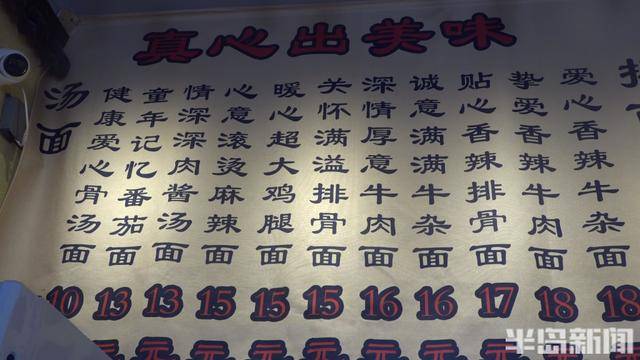 真心出美味
汤面
健康爱心骨汤面 10
童年记忆番茄面 13元
情深深肉酱汤面 13元
心意滚烫麻辣面 15元
暖心超大鸡腿面 15元
关怀满溢排骨面 15元
深情厚意牛肉面 16元
诚意满满牛杂面 16元
贴心香辣排骨面 17元
挚爱香辣牛肉面 18元
爱心香辣牛杂面 18
半岛新闻